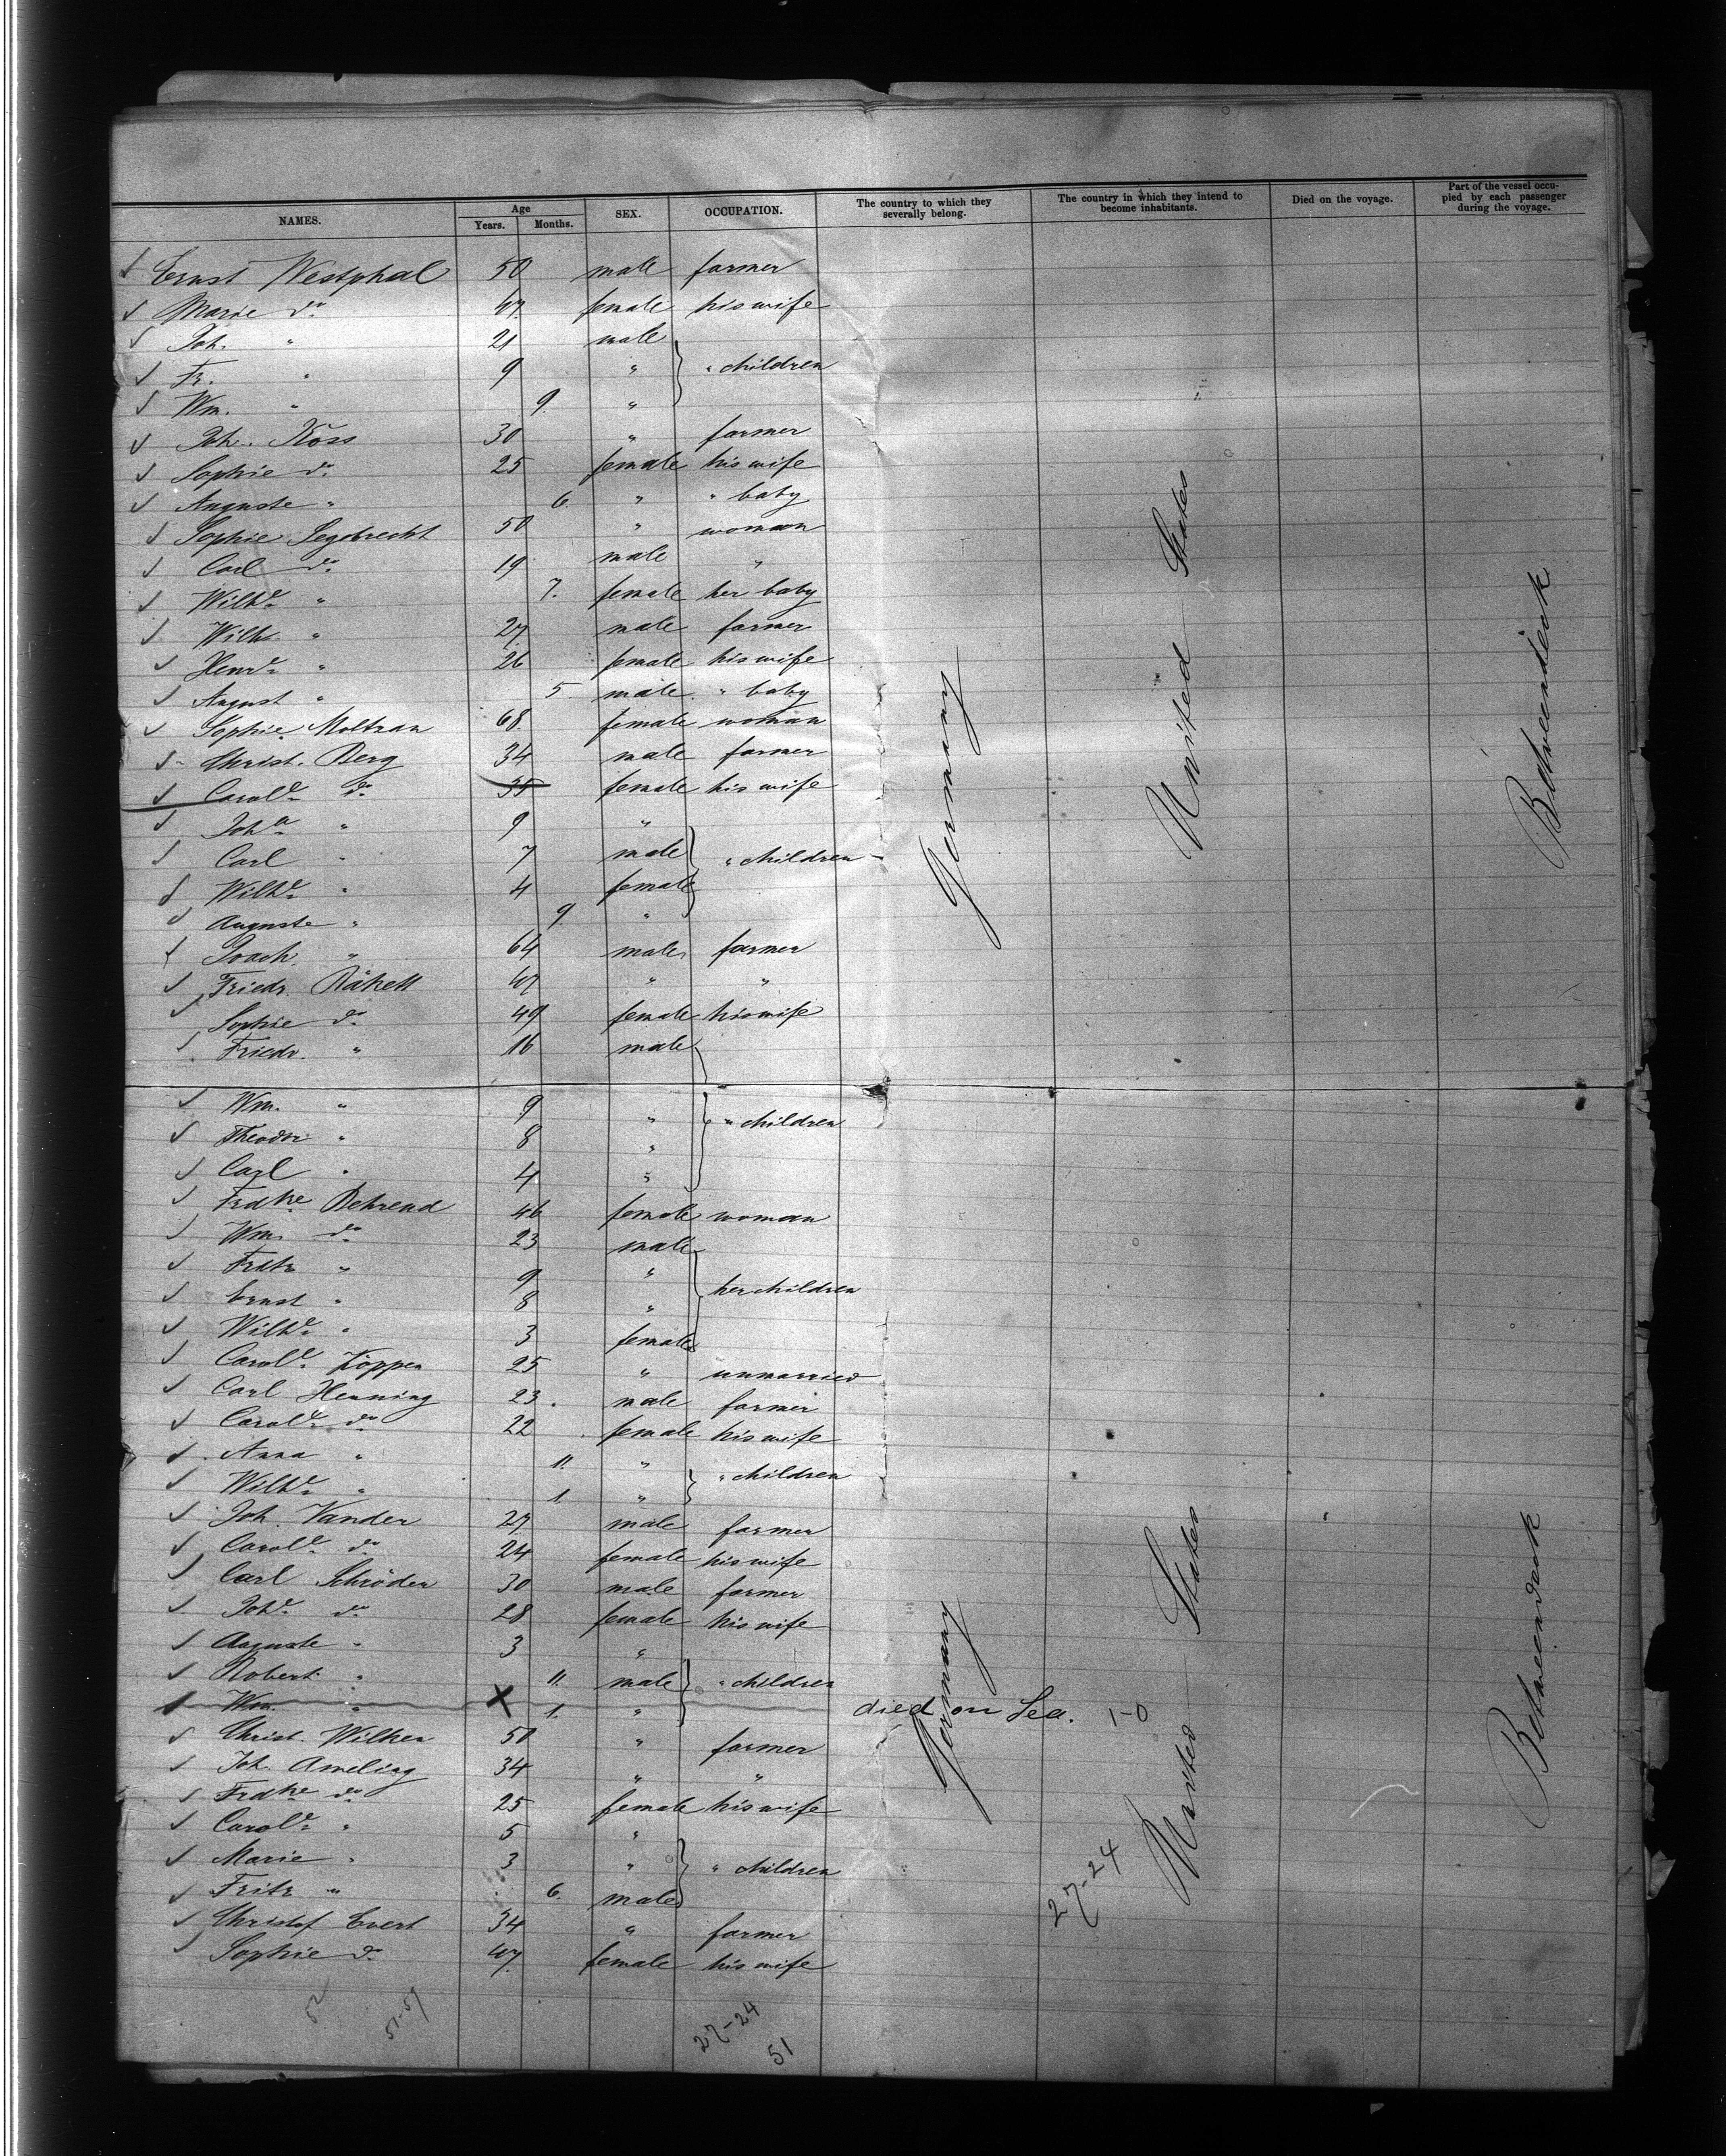 NAMES. Age Years. Months. SEX. OCCUPATION. The country to which they severally belong. The country in which they intend to become inhabitants. Died on the voyage. Part of the vessel occupied by each passenger during the voyage.
Ernst Westphal 50 male farmer
Marie do 47 female his wife
Joh. " 21 male
Fr. " 9 " " children
Wm. " 9. "
Joh. Köss 30 " farmer
Sophie do 25 female his wife
Auguste " 6. " " baby
Sophie Segebrecht 50 " woman
Carl do 19 male "
Wilhe " 7. female her baby
Wilh. " 27 male farmer
Henre " 26 female his wife
August " 5. male " baby
Sophie Moltzan 68 female woman
Christ. Berg 34 male farmer
Carole do 35 female his wife
Joha " 9 "
Carl " 7 male " children
Wilhe " 4 female
Auguste " 9. "
Joach. " 64 male farmer
Friedr. 47 " "
Sophie do 49 female his wife
Friedr. " 16 male
Wm. " 9 " " children
Theodor " 8 "
Carl " 4 "
Frdke Behrend 46 female woman
Wm. do 23 male
Frdr. " 9 " her children
Ernst " 8 "
Wilhe " 3 female
Carole Köppen 25 " unmarried
Carl Henning 23 male farmer
Carole do 22 female his wife
Anna " 11. " " children
Wilhe " 1. "
Joh. Vander 27 male farmer
Carole do 24 female his wife
Carl Schröder 30 male farmer
Johe do 28 female his wife
Auguste " 3 "
Robert " 11. male " children
Wm. " X 1. " died on Sea. 1-0
Christ. Wilken 50 " farmer
Joh. Ameling 34 " "
Frdke do 25 female his wife
Carole " 5 "
Marie " 3 " " children
Fritz " 6. male
Christof Evert 34 " farmer
Sophie do 47 female his wife
Germany
United States
Betweendeck
Germany
United States
Betweendeck
27-24
52
51-51
27-24
51